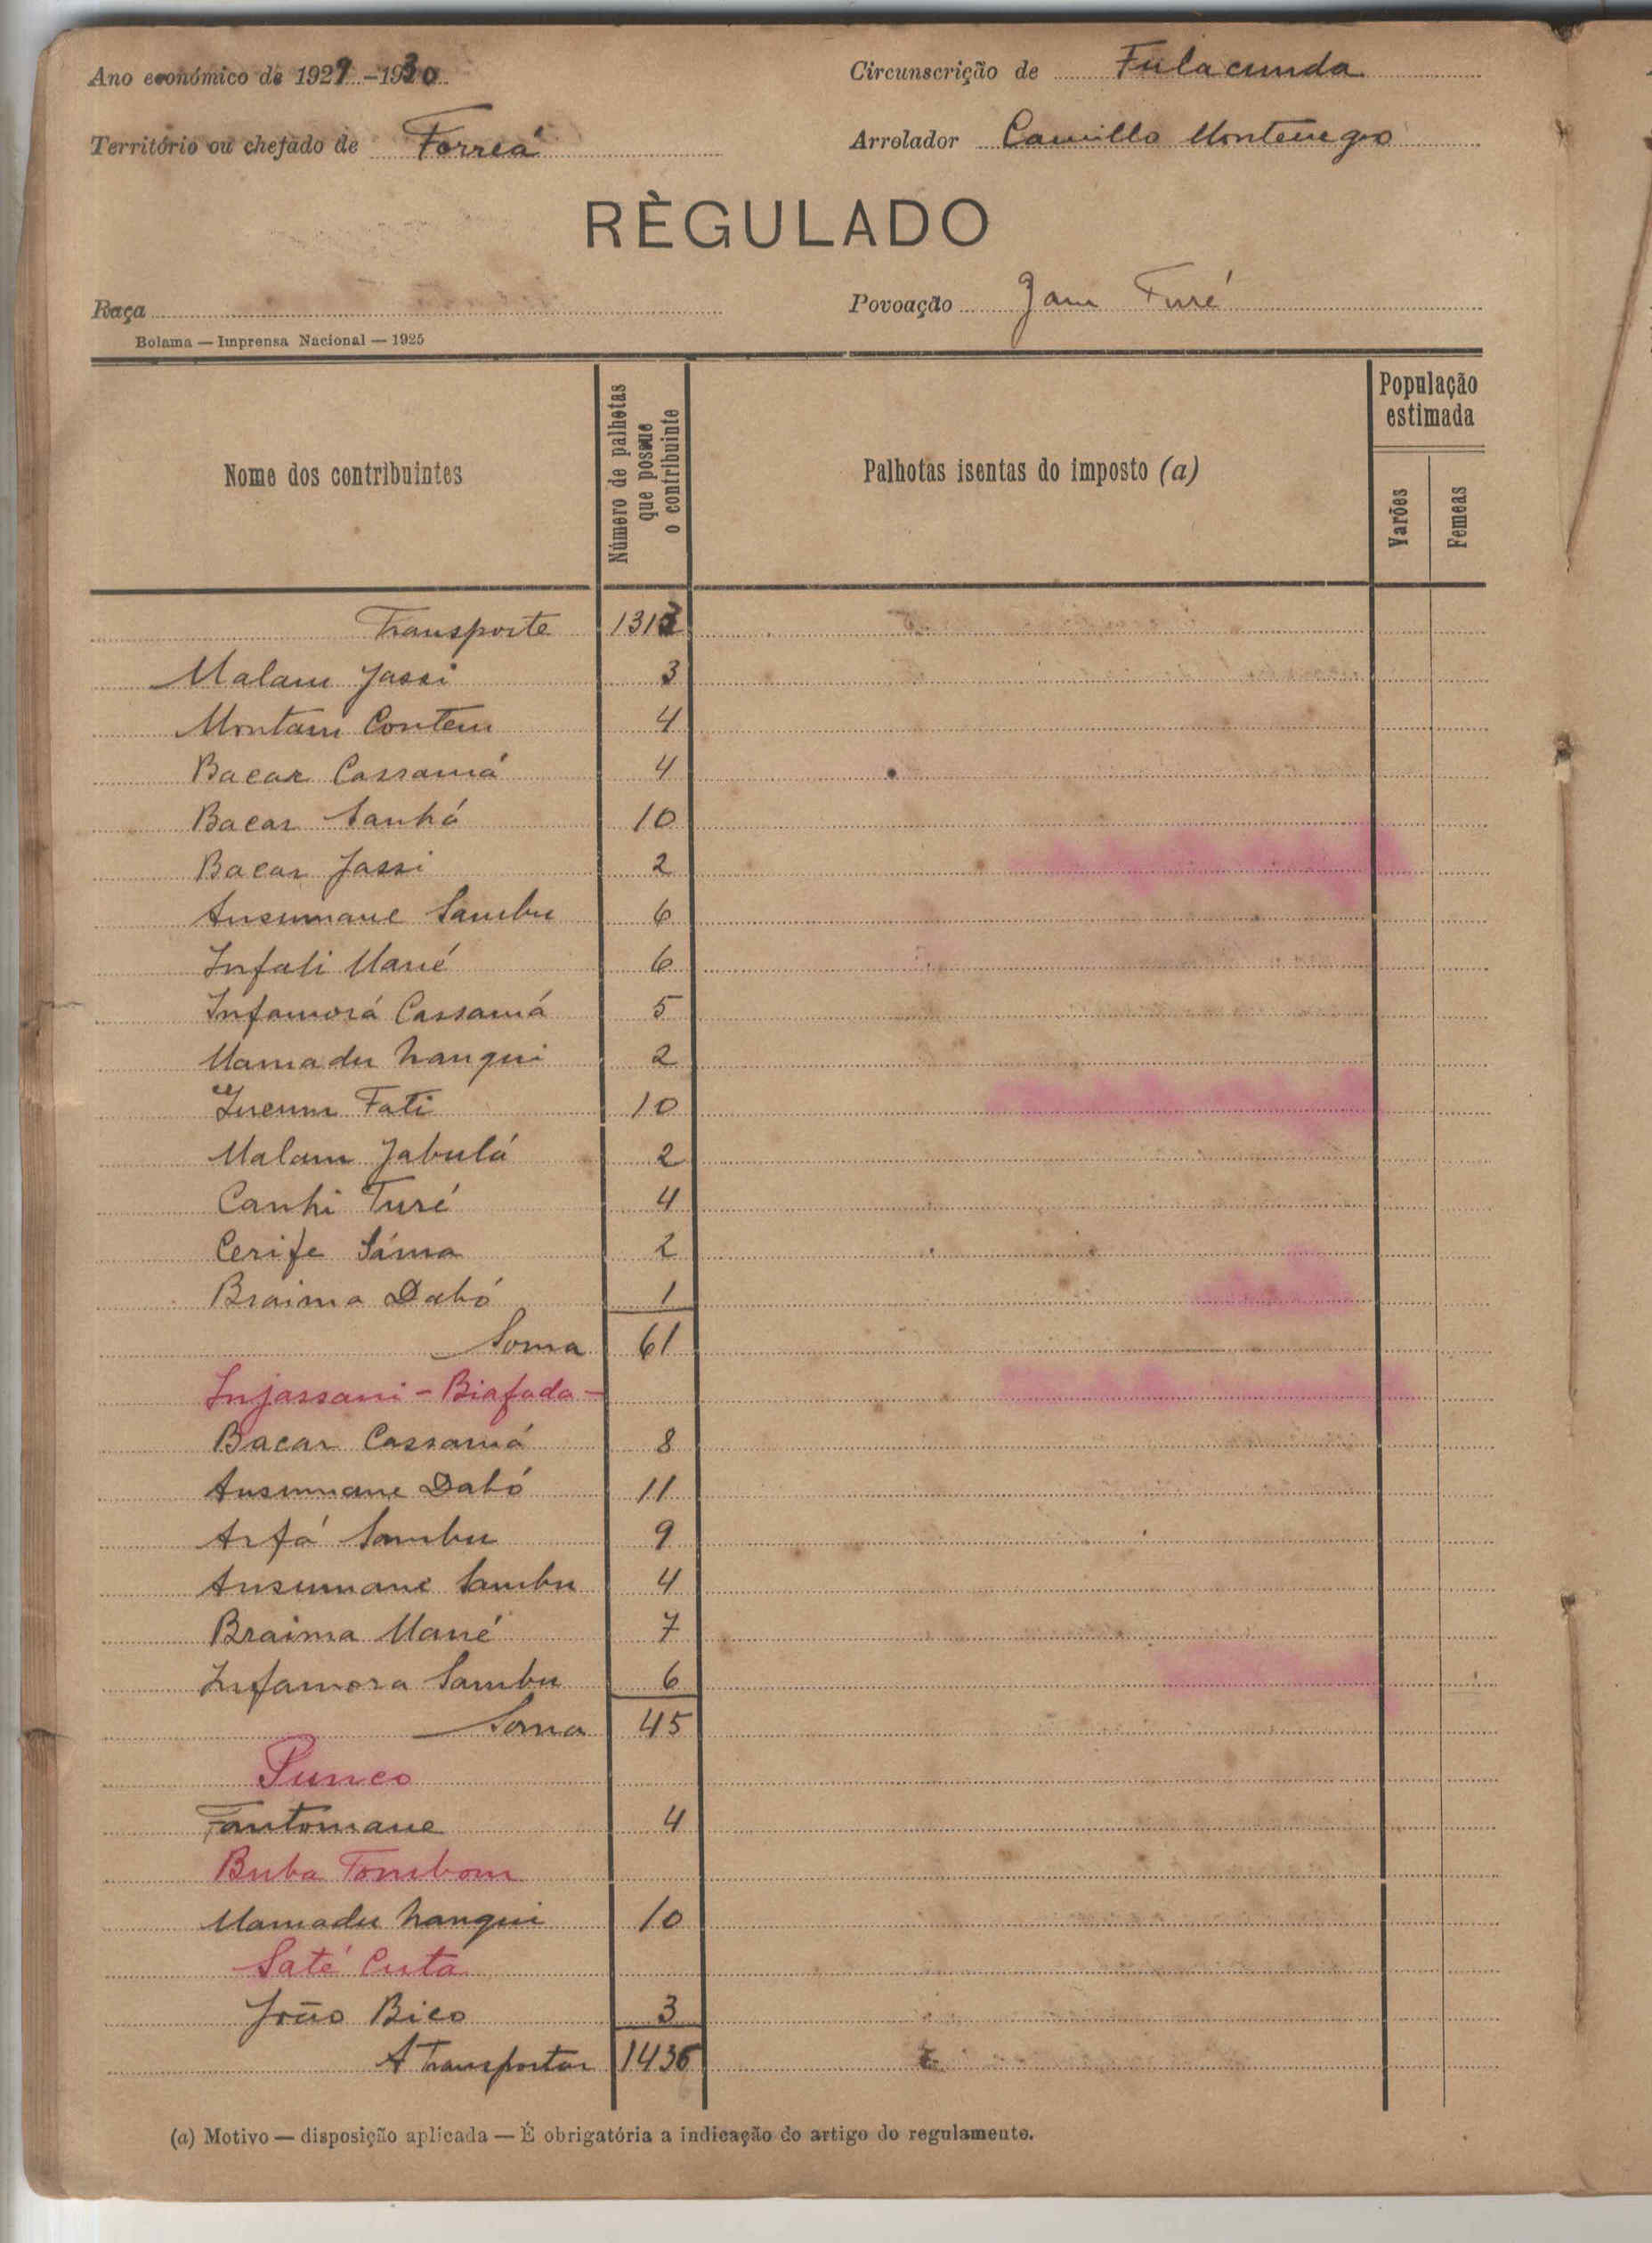 Ano económico de 1929-1930
Circunscrição de Fulacunda
Território ou chefado de Forreá
Arrolador Camillo Montenegro
RÈGULADO
Raça
Povoação Jam Turé
Bolama — Imprensa Nacional — 1925
Nome dos contribuintes
Número de palhotas que possue o contribuinte
Palhotas isentas do imposto (a)
População estimada
Varões
Femeas
Transporte 1313
Malam Jassi 3
Montam Contem 4
Bacar Cassamá 4
Bacar Sanhá 10
Bacar Jassi 2
Ansumane Sambu 6
Infali Mané 6
Infamorá Cassamá 5
Mamadu Nanqui 2
Fati 10
Malam Jabulá 2
Canhi Turé 4
Cerife Sáma 2
Braima Dabó 1
Soma 61
Injassani - Biafada -
Bacar Cassamá 8
Ansumane Dabó 11
Arfá Sambu 9
Ansumane Sambu 4
Braima Mané 7
Infamora Sambu 6
Soma 45
Punco
Fantomane 4
Buba Tombom
Mamadu Nanqui 10
Saté Cuta
João Bico 3
A Transportar 1436
(a) Motivo — disposição aplicada — É obrigatória a indicação do artigo do regulamento.